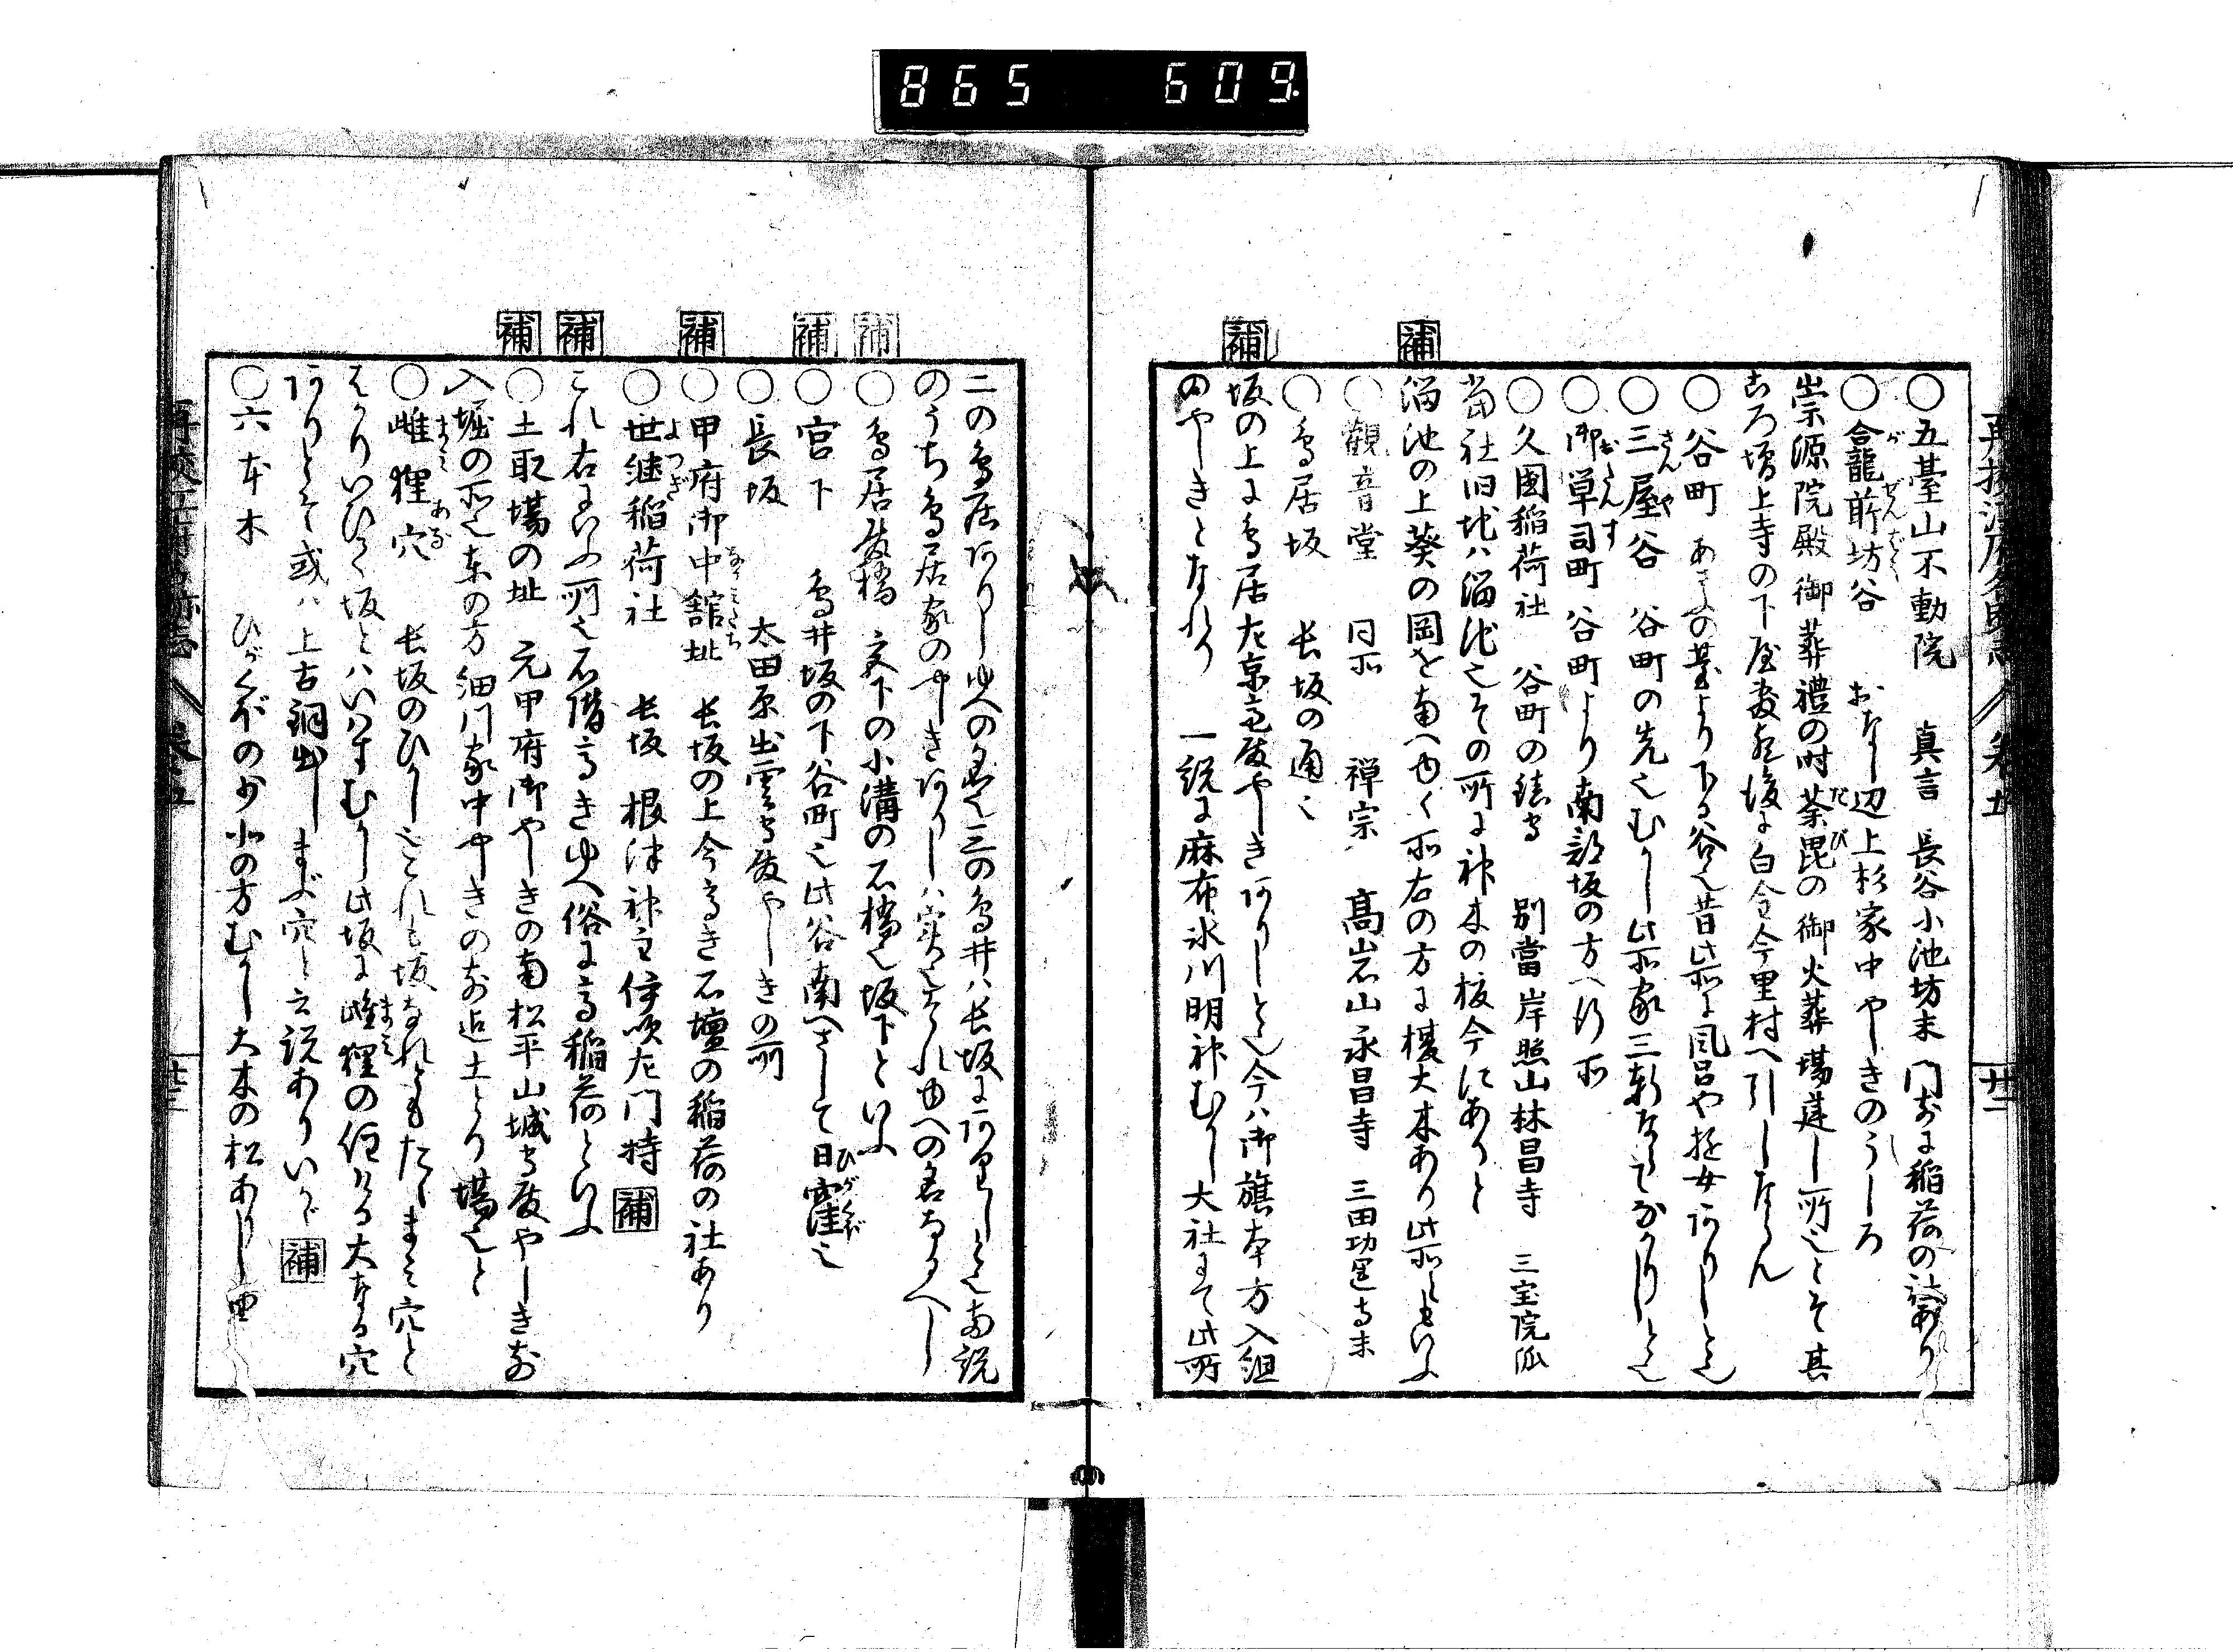 865 609
○五臺山不動院 真言 長谷小池坊末 門前に稲荷の社あり
○合龍前坊谷 おなし辺上杉家中やしきのうしろ
崇源院殿御葬禮の時荼毘の御火葬場建し所也とそ其
ころ増上寺の下屋敷
今里村へ引しならん
○谷町 の臺より下る谷也昔此所に風呂や遊女ありしと也
○三屋谷 谷町の先也むかし此所家三軒ならてなかりしと也
○御箪司町 谷町より南部坂の方へ行所
○久國稲荷社 谷町の鎮守 別當岸照山林昌寺 三宝院派
當社旧地ハ溜池也その所に神木の榎今にありと
補 溜池の上葵の岡を南へゆく所右の方に榎大木あり此所
○觀音堂 同所 禅宗 高岩山永昌寺 三田功運寺末
○鳥居坂 長坂の通也
補 坂の上に鳥居左京亮殿やしきありしと也今ハ御旗本方入組
のやしきとなれり 一説に麻布氷川明神むかし大社にて此所
二の鳥居ありしゆへの名也三の鳥井ハ長坂にありしと也両説
のうち鳥居家のやしきありしハ実なれゆへの名なるへし
補 ○鳥居殿橋 坂下の小溝の石橋也坂下といふ
補 ○宮下 鳥井坂の下谷町也此谷南へさして日ヶ窪也
○長坂 太田原出雲守殿やしきの所
補 ○甲府御中館址 長坂の上今高き石壇の稲荷の社あり
○世継稲荷社 長坂 根津神主 伊吹左門持 補
補 これ右にいふ所也石階高きゆへ俗に高稲荷といふ
補 ○土取場の址 元甲府御やしきの南松平山城守殿やしき前
入堀の所也東の方細川家中やしきの前迄土とり場也と
○雌狸穴 長坂のひかし也これも坂なれともたゝまみ穴と
はかりいひて坂とハいはすむかし此坂に雌狸の住ける大なる穴
ありしとそ或ハ上古銅出しまぶ穴と云説ありいかゝ 補
○六本木 ひがくぼの少北の方むかし大木の松ありし由